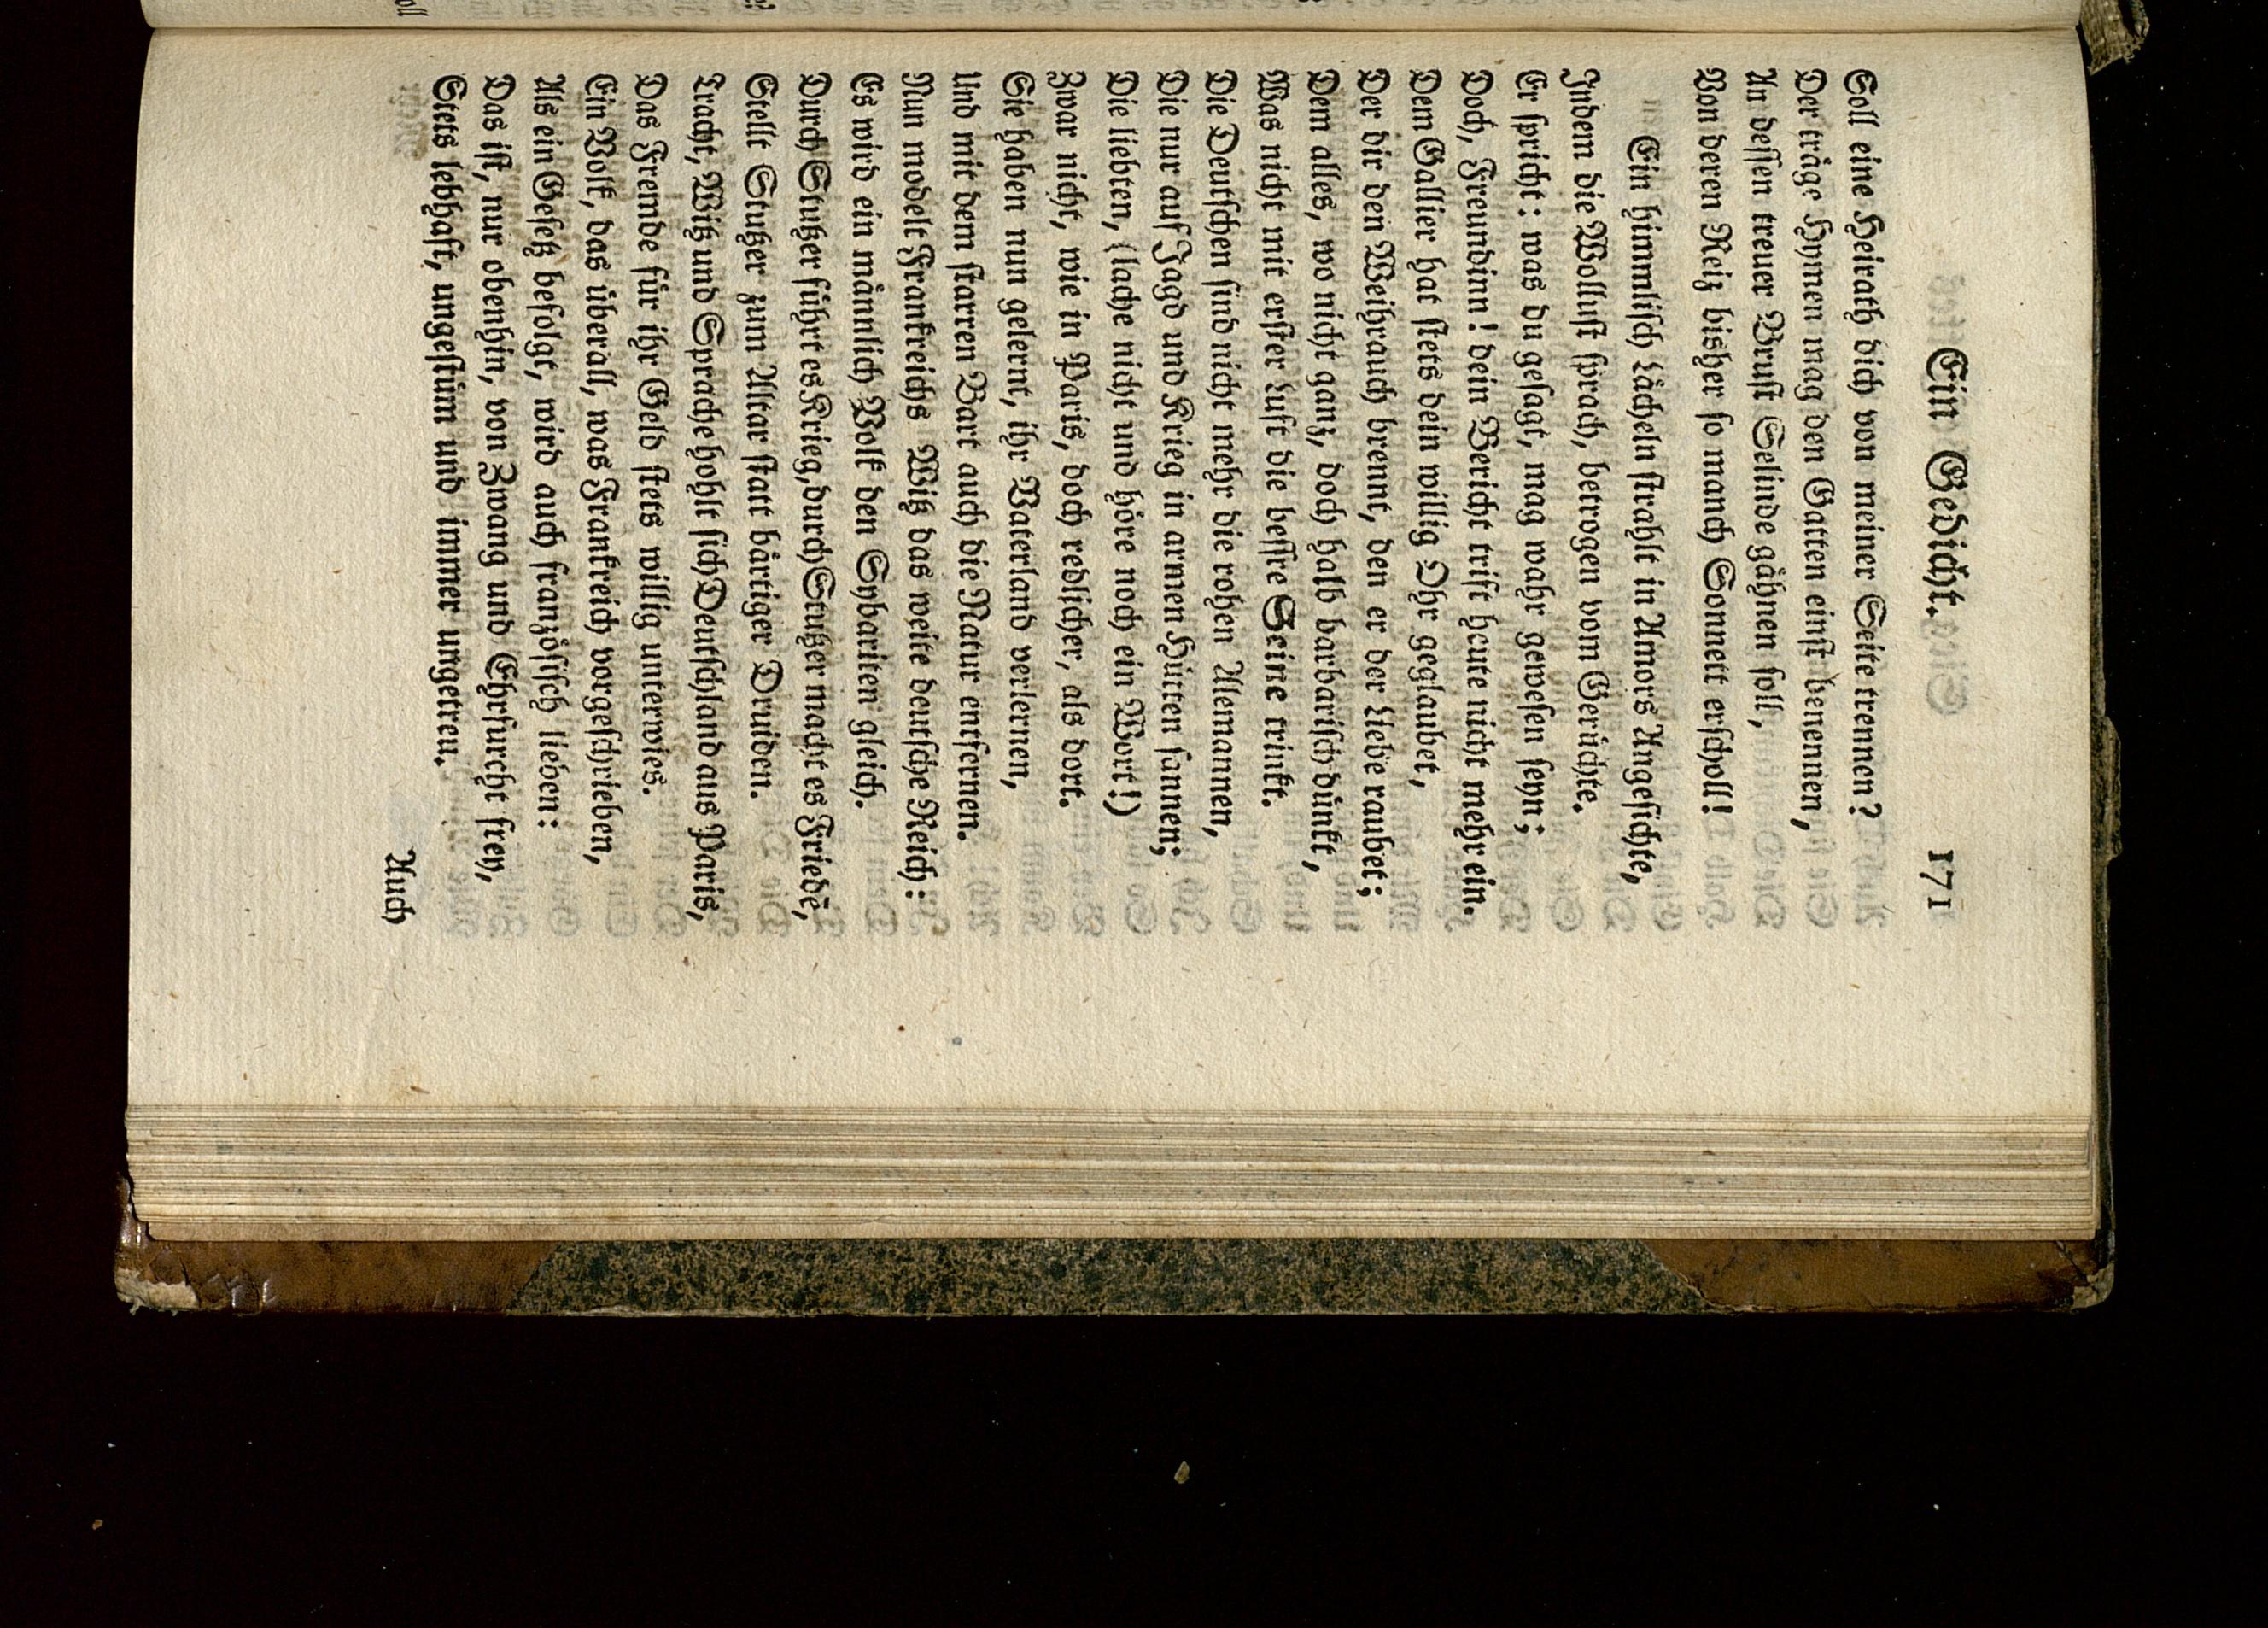 Ein Gedicht. 171
Soll eine Heirath dich von meiner Seite trennen?
Der träge Hymen mag den Gatten einst benennen,
An dessen treuer Brust Selinde gähnen soll,
Von deren Reiz bisher so manch Sonnett erscholl!
Ein himmlisch Lächeln strahlt in Amors Angesichte,
Indem die Wollust sprach, betrogen vom Gerüchte.
Er spricht: was du gesagt, mag wahr gewesen seyn;
Doch, Freundinn! dein Bericht trift heute nicht mehr ein.
Dem Gallier hat stets dein willig Ohr geglaubet,
Der dir den Weihrauch brennt, den er der Liebe raubet;
Dem alles, wo nicht ganz, doch halb barbarisch dünkt,
Was nicht mit erster Lust die bessre Seine trinkt.
Die Deutschen sind nicht mehr die rohen Alemannen,
Die nur auf Jagd und Krieg in armen Hütten sannen;
Die liebten, (lache nicht und höre noch ein Wort!)
Zwar nicht, wie in Paris, doch redlicher, als dort.
Sie haben nun gelernt, ihr Vaterland verlernen,
Und mit dem starren Bart auch die Natur entfernen.
Nun modelt Frankreichs Witz das weite deutsche Reich:
Es wird ein männlich Volk den Sybariten gleich.
Durch Stutzer führt es Krieg, durch Stutzer macht es Friede,
Stellt Stutzer zum Altar statt bärtiger Druiden.
Tracht, Witz und Sprache hohlt sich Deutschland aus Paris,
Das Fremde für ihr Geld stets willig unterwies.
Ein Volk, das überall, was Frankreich vorgeschrieben,
Als ein Gesetz befolgt, wird auch französisch lieben:
Das ist, nur obenhin, von Zwang und Ehrfurcht frey,
Stets lebhaft, ungestüm und immer ungetreu.
Auch
oll